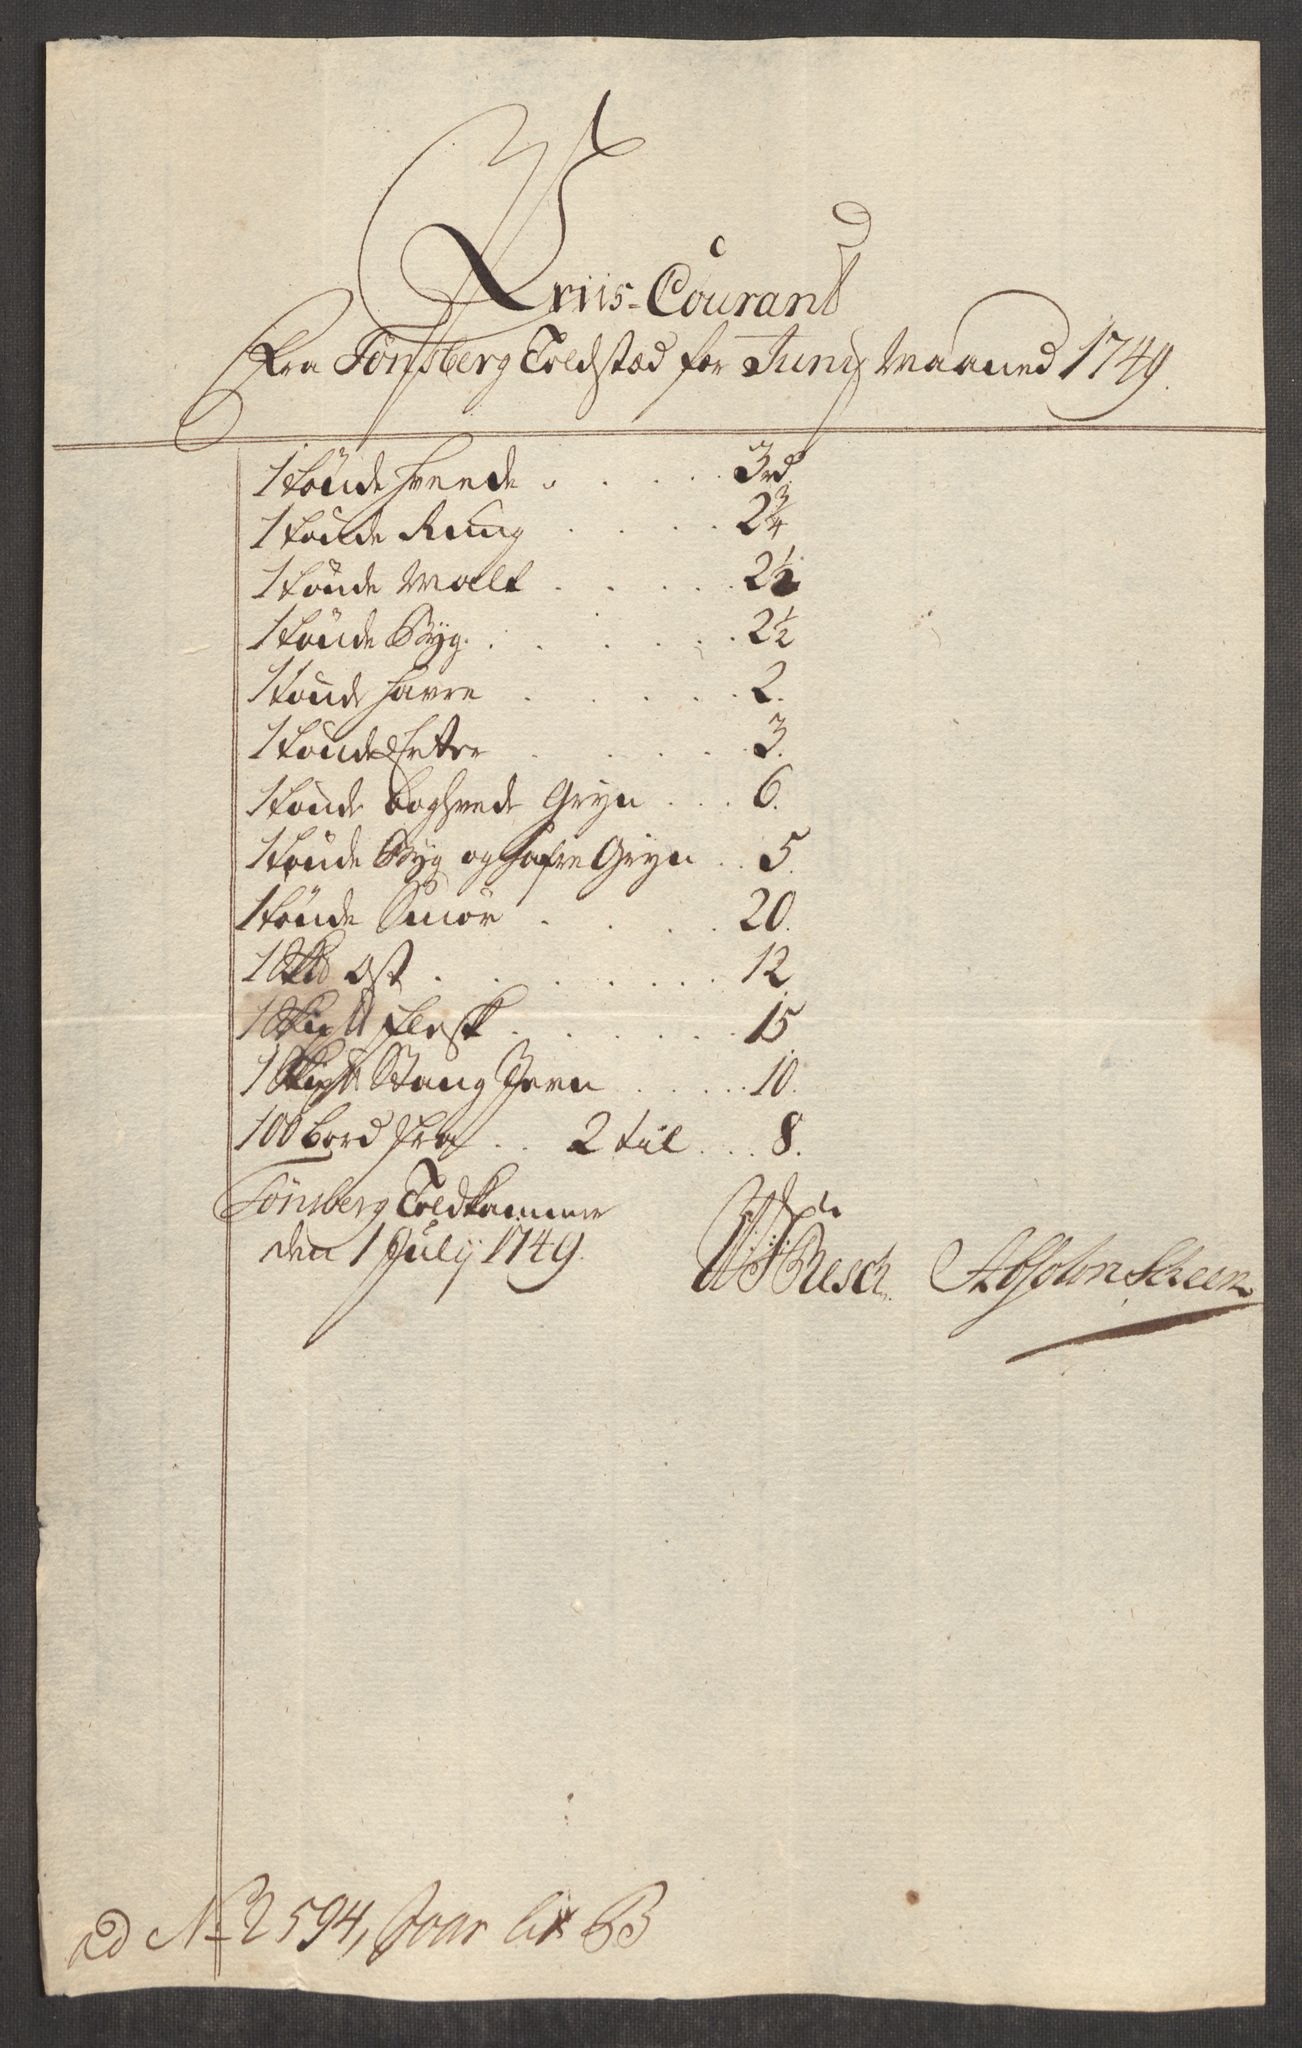 Priis-Courant
Fra Tönsberg Toldstæd for Junij Maaned 1749.
1 tönde Hvede . . . . . 3 rd.
1 tönde Rug . . . . 2 3/4
1 tönde Malt . . . . . 2 1/2
1 tönde Byg. . . . . . 2 1/2
1 tönde Havre . . . . . 2.
1 tönde Erter . . . . . 3.
1 tönde boghvede Gryn . . . 6.
1 tönde Byg og Hafre Gryn . . 5.
1 tönde Smör . . . . 20.
1 Sk℔ Ost . . . . . . 12
1 Skip℔ Flesk . . . . . 15
1 Skip℔ Stang Jern . . . . 10.
100 bord fra . . 2 til . . . 8.
Tönsberg Toldkammer
den 1 Julij 1749.
Resch Absolon Skeen
ad No 2594, Lit B